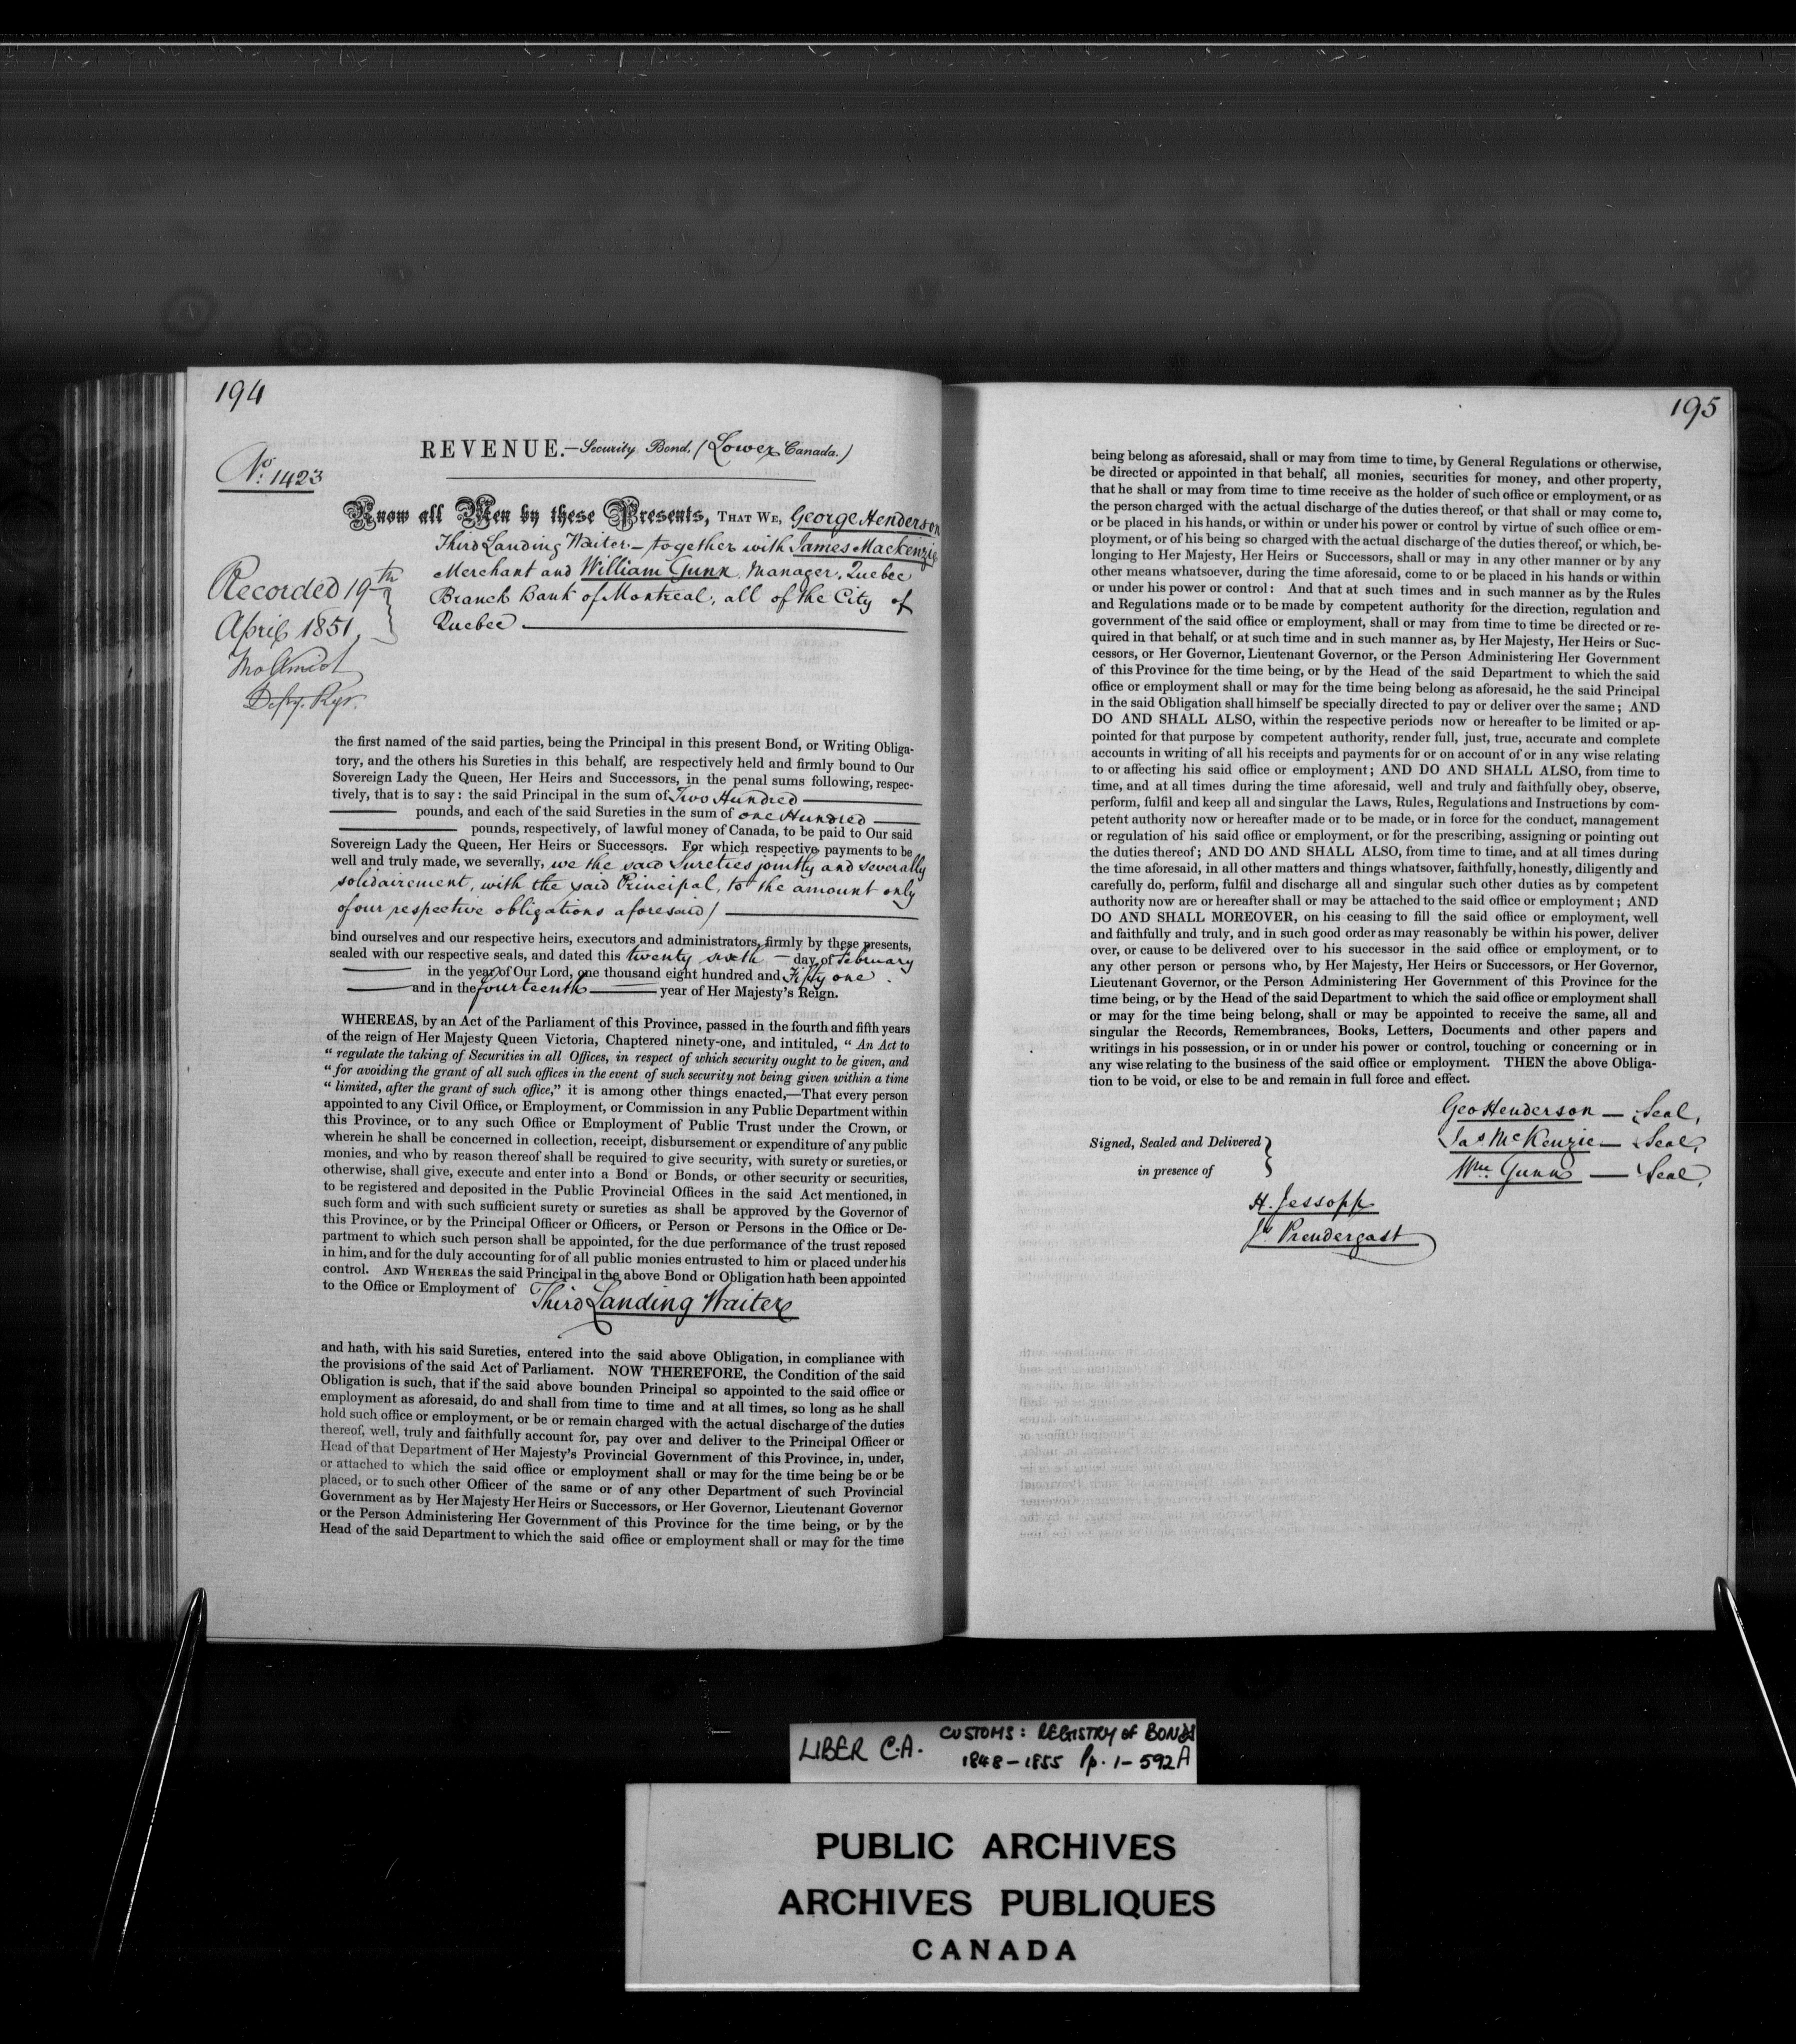 194
REVENUE.—Security Bond. (Lower Canada.)
No. 1423
Know all Men by these Presents, THAT WE, George Henderson
Third Landing Waiter — together with James Mackenzie
Merchant and William Gunn, Manager, Quebec
Branch Bank of Montreal, all of the City of
Quebec
Recorded 19th
April 1851,
Depy. Rgr.
the first named of the said parties, being the Principal in this present Bond, or Writing Obliga-
tory, and the others his Sureties in this behalf, are respectively held and firmly bound to Our
Sovereign Lady the Queen, Her Heirs and Successors, in the penal sums following, respec-
tively, that is to say: the said Principal in the sum of Two Hundred
pounds, and each of the said Sureties in the sum of one Hundred
pounds, respectively, of lawful money of Canada, to be paid to Our said
Sovereign Lady the Queen, Her Heirs or Successors. For which respective payments to be
well and truly made, we severally, we the said Sureties jointly and severally
solidairement, with the said Principal, to the amount only
of our respective obligations aforesaid/
bind ourselves and our respective heirs, executors and administrators, firmly by these presents,
sealed with our respective seals, and dated this twenty sixth — day of February
in the year of Our Lord, one thousand eight hundred and Fifty one.
and in the fourteenth year of Her Majesty's Reign.
WHEREAS, by an Act of the Parliament of this Province, passed in the fourth and fifth years
of the reign of Her Majesty Queen Victoria, Chaptered ninety-one, and intituled, “ An Act to
“ regulate the taking of Securities in all Offices, in respect of which security ought to be given, and
“ for avoiding the grant of all such offices in the event of such security not being given within a time
“ limited, after the grant of such office,” it is among other things enacted,—That every person
appointed to any Civil Office, or Employment, or Commission in any Public Department within
this Province, or to any such Office or Employment of Public Trust under the Crown, or
wherein he shall be concerned in collection, receipt, disbursement or expenditure of any public
monies, and who by reason thereof shall be required to give security, with surety or sureties, or
otherwise, shall give, execute and enter into a Bond or Bonds, or other security or securities,
to be registered and deposited in the Public Provincial Offices in the said Act mentioned, in
such form and with such sufficient surety or sureties as shall be approved by the Governor of
this Province, or by the Principal Officer or Officers, or Person or Persons in the Office or De-
partment to which such person shall be appointed, for the due performance of the trust reposed
in him, and for the duly accounting for of all public monies entrusted to him or placed under his
control. AND WHEREAS the said Principal in the above Bond or Obligation hath been appointed
to the Office or Employment of Third Landing Waiter
and hath, with his said Sureties, entered into the said above Obligation, in compliance with
the provisions of the said Act of Parliament. NOW THEREFORE, the Condition of the said
Obligation is such, that if the said above bounden Principal so appointed to the said office or
employment as aforesaid, do and shall from time to time and at all times, so long as he shall
hold such office or employment, or be or remain charged with the actual discharge of the duties
thereof, well, truly and faithfully account for, pay over and deliver to the Principal Officer or
Head of that Department of Her Majesty's Provincial Government of this Province, in, under,
or attached to which the said office or employment shall or may for the time being be or be
placed, or to such other Officer of the same or of any other Department of such Provincial
Government as by Her Majesty Her Heirs or Successors, or Her Governor, Lieutenant Governor
or the Person Administering Her Government of this Province for the time being, or by the
Head of the said Department to which the said office or employment shall or may for the time
195
being belong as aforesaid, shall or may from time to time, by General Regulations or otherwise,
be directed or appointed in that behalf, all monies, securities for money, and other property,
that he shall or may from time to time receive as the holder of such office or employment, or as
the person charged with the actual discharge of the duties thereof, or that shall or may come to,
or be placed in his hands, or within or under his power or control by virtue of such office or em-
ployment, or of his being so charged with the actual discharge of the duties thereof, or which, be-
longing to Her Majesty, Her Heirs or Successors, shall or may in any other manner or by any
other means whatsoever, during the time aforesaid, come to or be placed in his hands or within
or under his power or control: And that at such times and in such manner as by the Rules
and Regulations made or to be made by competent authority for the direction, regulation and
government of the said office or employment, shall or may from time to time be directed or re-
quired in that behalf, or at such time and in such manner as, by Her Majesty, Her Heirs or Suc-
cessors, or Her Governor, Lieutenant Governor, or the Person Administering Her Government
of this Province for the time being, or by the Head of the said Department to which the said
office or employment shall or may for the time being belong as aforesaid, he the said Principal
in the said Obligation shall himself be specially directed to pay or deliver over the same; AND
DO AND SHALL ALSO, within the respective periods now or hereafter to be limited or ap-
pointed for that purpose by competent authority, render full, just, true, accurate and complete
accounts in writing of all his receipts and payments for or on account of or in any wise relating
to or affecting his said office or employment; AND DO AND SHALL ALSO, from time to
time, and at all times during the time aforesaid, well and truly and faithfully obey, observe,
perform, fulfil and keep all and singular the Laws, Rules, Regulations and Instructions by com-
petent authority now or hereafter made or to be made, or in force for the conduct, management
or regulation of his said office or employment, or for the prescribing, assigning or pointing out
the duties thereof; AND DO AND SHALL ALSO, from time to time, and at all times during
the time aforesaid, in all other matters and things whatsover, faithfully, honestly, diligently and
carefully do, perform, fulfil and discharge all and singular such other duties as by competent
authority now are or hereafter shall or may be attached to the said office or employment; AND
DO AND SHALL MOREOVER, on his ceasing to fill the said office or employment, well
and faithfully and truly, and in such good order as may reasonably be within his power, deliver
over, or cause to be delivered over to his successor in the said office or employment, or to
any other person or persons who, by Her Majesty, Her Heirs or Successors, or Her Governor,
Lieutenant Governor, or the Person Administering Her Government of this Province for the
time being, or by the Head of the said Department to which the said office or employment shall
or may for the time being belong, shall or may be appointed to receive the same, all and
singular the Records, Remembrances, Books, Letters, Documents and other papers and
writings in his possession, or in or under his power or control, touching or concerning or in
any wise relating to the business of the said office or employment. THEN the above Obliga-
tion to be void, or else to be and remain in full force and effect.
Geo Henderson — Seal,
Signed, Sealed and Delivered
Jas McKenzie — Seal,
in presence of
Wm. Gunn — Seal,
H. Jessopp
Js Prendergast
LIBER C.A. CUSTOMS: REGISTRY OF BONDS
1848-1855 Pp. 1-592A
PUBLIC ARCHIVES
ARCHIVES PUBLIQUES
CANADA